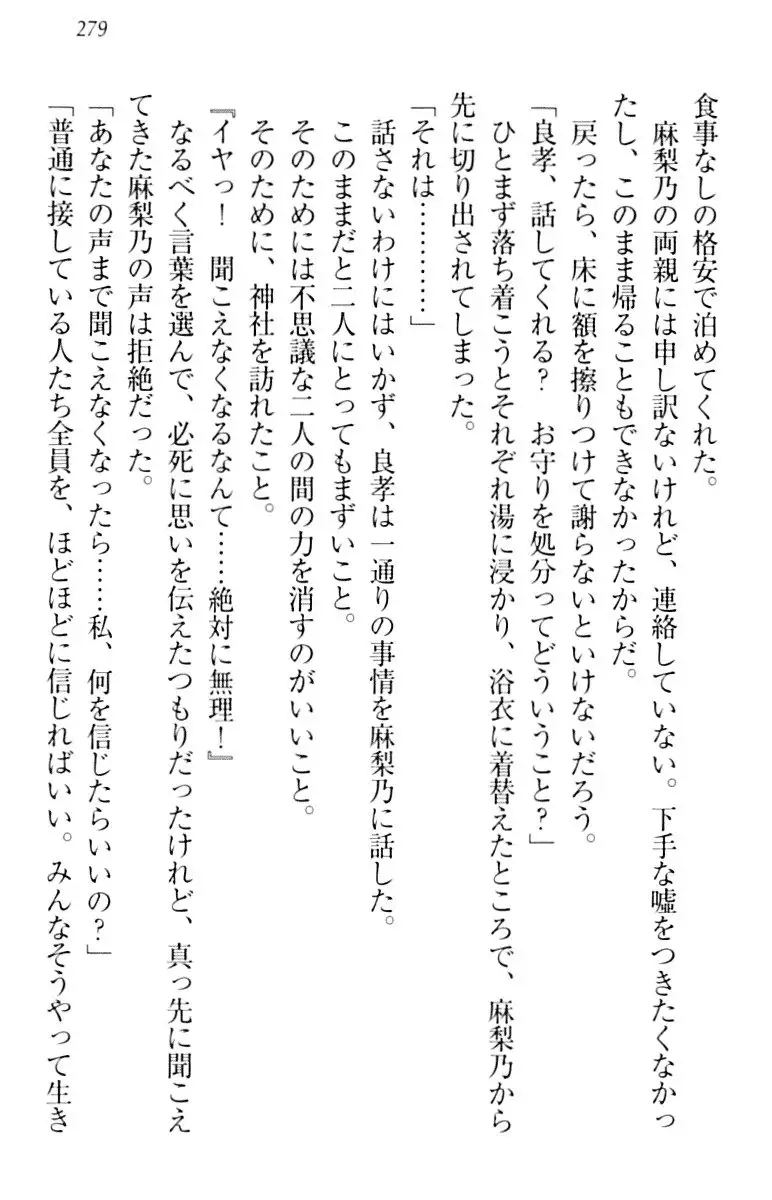 279
食事なしの格安で泊めてくれた。
麻梨乃の両親には申し訳ないけれど、連絡していない。下手な嘘をつきたくなかっ
たし、このまま帰ることもできなかったからだ。
戻ったら、床に額を擦りつけて謝らないといけないだろう。
「良孝、話してくれる？　お守りを処分ってどういうこと？」
ひとまず落ち着こうとそれぞれ湯に浸かり、浴衣に着替えたところで、麻梨乃から
先に切り出されてしまった。
「それは…………」
話さないわけにはいかず、良孝は一通りの事情を麻梨乃に話した。
このままだと二人にとってもまずいこと。
そのためには不思議な二人の間の力を消すのがいいこと。
そのために、神社を訪れたこと。
『イヤっ！　聞こえなくなるなんて……絶対に無理！』
なるべく言葉を選んで、必死に思いを伝えたつもりだったけれど、真っ先に聞こえ
てきた麻梨乃の声は拒絶だった。
「あなたの声まで聞こえなくなったら……私、何を信じたらいいの？」
「普通に接している人たち全員を、ほどほどに信じればいい。みんなそうやって生き